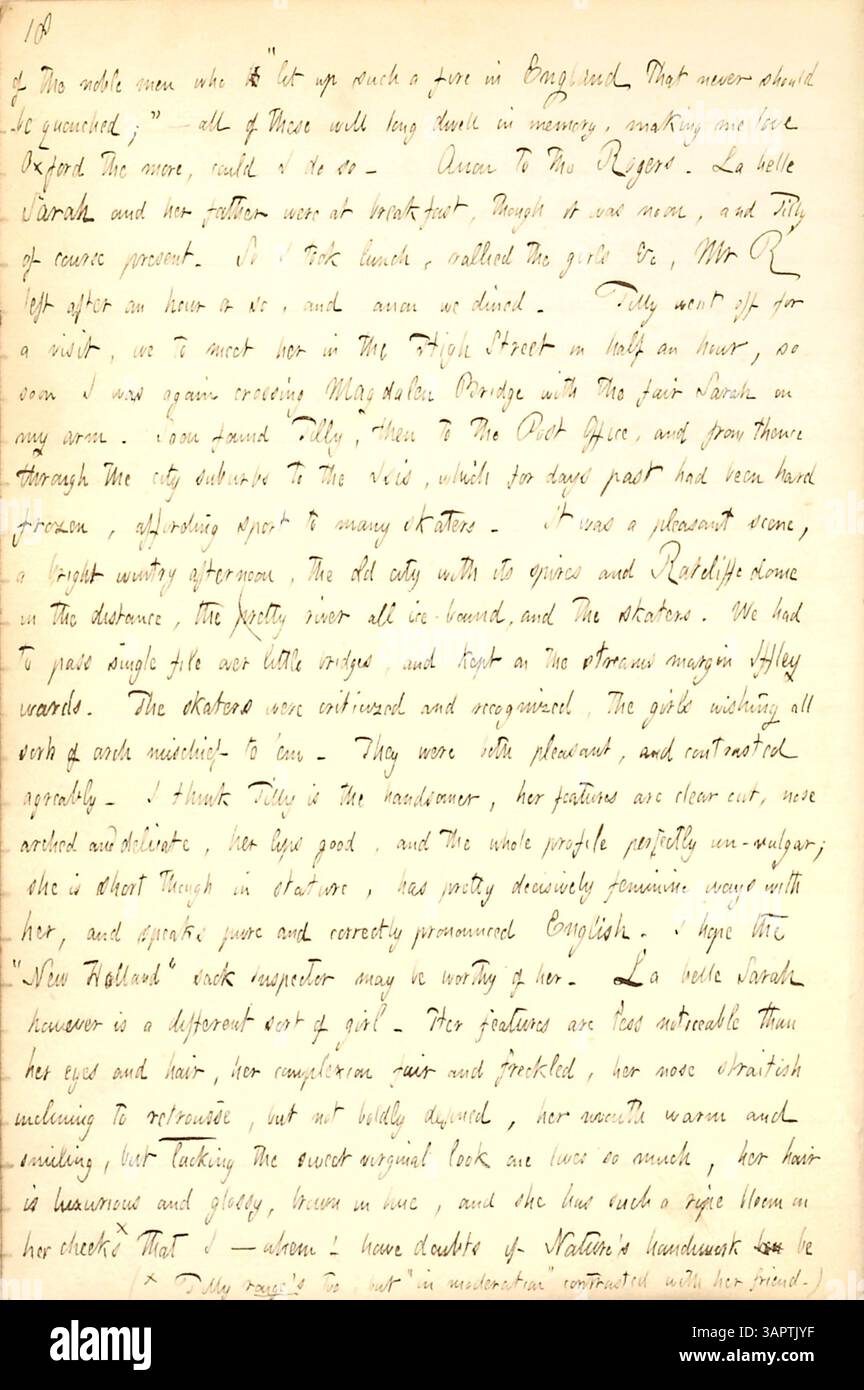 18
of the noble men who "lit up such a fire in England that never should
be quenched;" — all of these will long dwell in memory, making me love
Oxford the more, could I do so — Anon to the Rogers. La belle
Sarah and her father were at breakfast, though it was noon, and Tilly
of course present. So I took lunch, rallied the girls &c, Mr R
left after an hour or so, and anon we dined. Tilly went off for
a visit, we to meet her in the High Street in half an hour, so
soon I was again crossing Magdalen Bridge with the fair Sarah on
my arm. Soon found Tilly, then to the Post Office, and from thence
through the city suburbs to the Isis, which for days past had been hard
frozen, affording sport to many skaters — It was a pleasant scene,
a bright wintry afternoon, the old city with its spires and Ratcliffe dome
in the distance, the pretty river all ice-bound, and the skaters. We had
to pass single file over little bridges, and kept on the streams margin Iffley
wards. The skaters were criticized and recognized, the girls wishing all
sorts of arch mischief to 'em — They were both pleasant, and contrasted
agreably — I think Tilly is the handsomer, her features are clear cut, nose
arched and delicate, her lips good, and the whole profile perfectly un-vulgar;
she is short though in stature, has pretty decisively feminine ways with
her, and speaks pure and correctly pronounced English. I hope the
"New Holland" sack inspector may be worthy of her — La belle Sarah
however is a different sort of girl — Her features are less noticeable than
her eyes and hair, her complexion fair and freckled, her nose straitish
inclining to retrousse, but not boldly defined, her mouth warm and
smiling, but lacking the sweet virginal look one loves so much, her hair
is luxurious and glossy, brown in hue, and she has such a ripe bloom on
her cheeks x that I — ahem! have doubts if Nature's handiwork be
(x Tilly rouge's too, but "in moderation" contrasted with her friend —)
alamy
Image ID: 3APTJYF
www.alamy.com